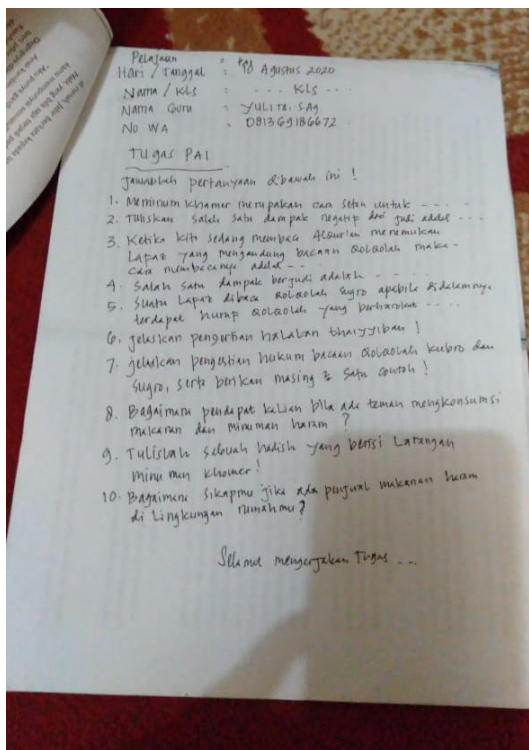 Pelajaran :
Hari / Tanggal : Agustus 2020
Nama / Kls : - - - Kls - -
Nama Guru : YULITA. SAg
No WA : 081369186672
TUgas PAI
Jawablah pertanyaan dibawah ini !
1. Meminum Khamer merupakan cara setan untuk - - - -
2. Tuliskan salah satu dampak negatip dari judi adalah - - -
3. Ketika kita sedang membaca Alqur'an menemukan
Lapaz yang mengandung bacaan Qolqolah maka -
cara membacanya adalah - -
4. Salah satu dampak berjudi adalah - - - -
5. Suatu Lapaz dibaca Qolqolah sugro apabila didalamnya
terdapat hurup Qolqolah yang berharokat - - - -
6. jelaskan pengertian halalan thaiyyiban !
7. jelaskan pengertian hukum bacaan Qolqolah kubro dan
Sugro, serta berikan masing 2 satu contoh !
8. Bagaimana pendapat kalian bila ada teman mengkonsumsi
makaran dan minuman haram ?
9. Tulislah sebuah hadish yang berisi Larangan
minuman khomer !
10. Bagaimana sikapmu jika ada penjual makanan haram
di Lingkungan rumahmu ?
Selamat mengerjakan Tugas - - -